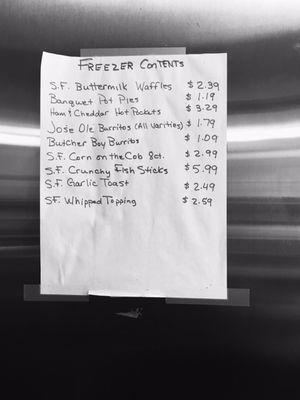 FREEZER CONTENTS
S.F. Buttermilk Waffles $2.39
Banquet Pot Pies $1.19
Ham & Cheddar Hot Pockets $3.29
Jose Ole Burritos (All Varities) $1.79
Butcher Boy Burritos $1.09
S.F. Corn on the Cob 8ct. $2.99
S.F. Crunchy Fish Sticks $5.99
S.F. Garlic Toast $2.49
S.F. Whipped Topping $2.59